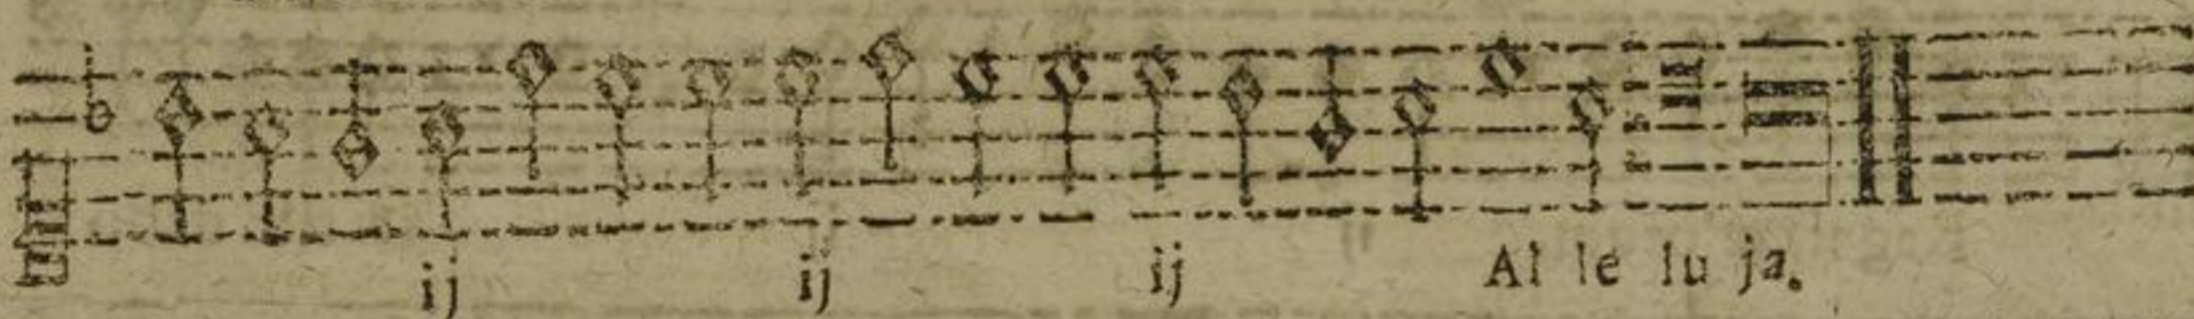 ij ij ij Al le lu ja.